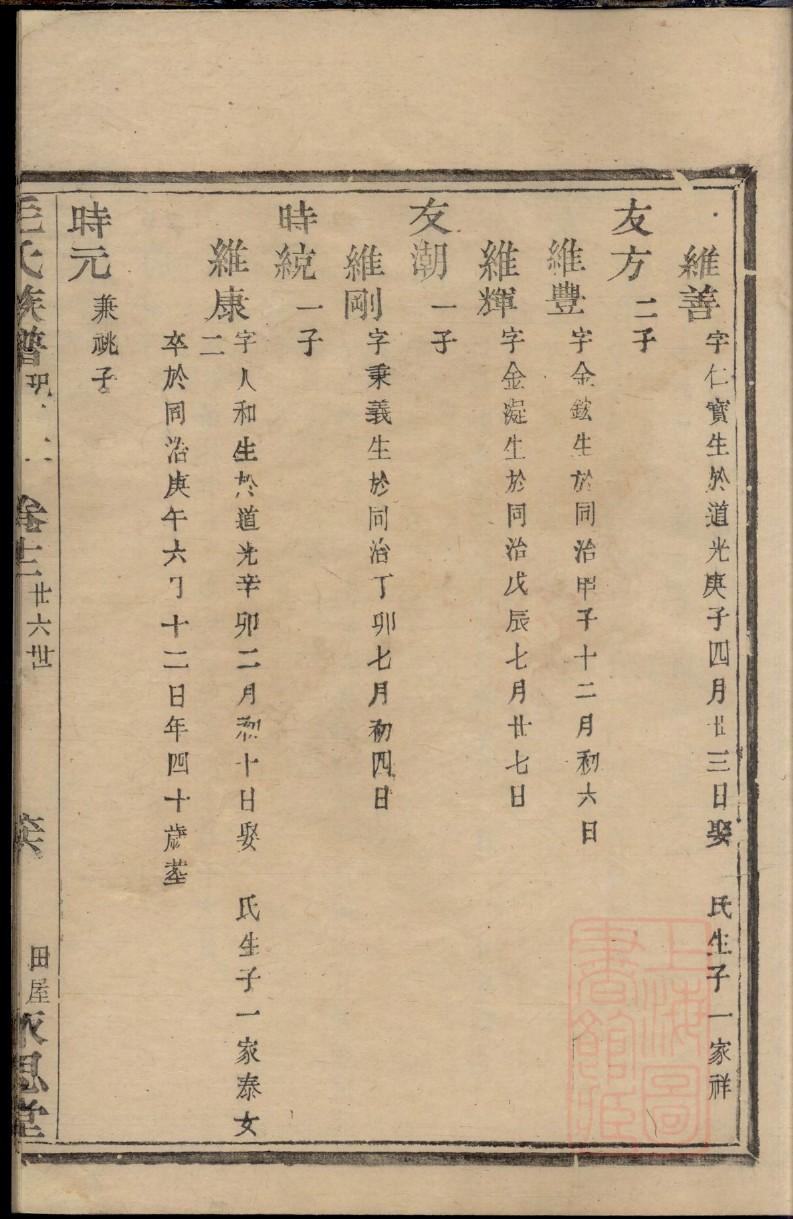 維善 字仁寶生於道光庚子四月廿三日娶 氏生子一家祥
友方 二子
維豐 字金鉉生於同治甲子十二月初六日
維輝 字金凝生於同治戊辰七月廿七日
友潮 一子
維剛 字秉義生於同治丁卯七月初四日
時統 一子
維康 字人和生於道光辛卯二月初十日娶 氏生子一家泰女
二
卒於同治庚午六月十二日年四十歲葬
時元 兼祧子
毛氏族譜 卷十二 廿六世 田屋 永思堂
上海圖書館藏